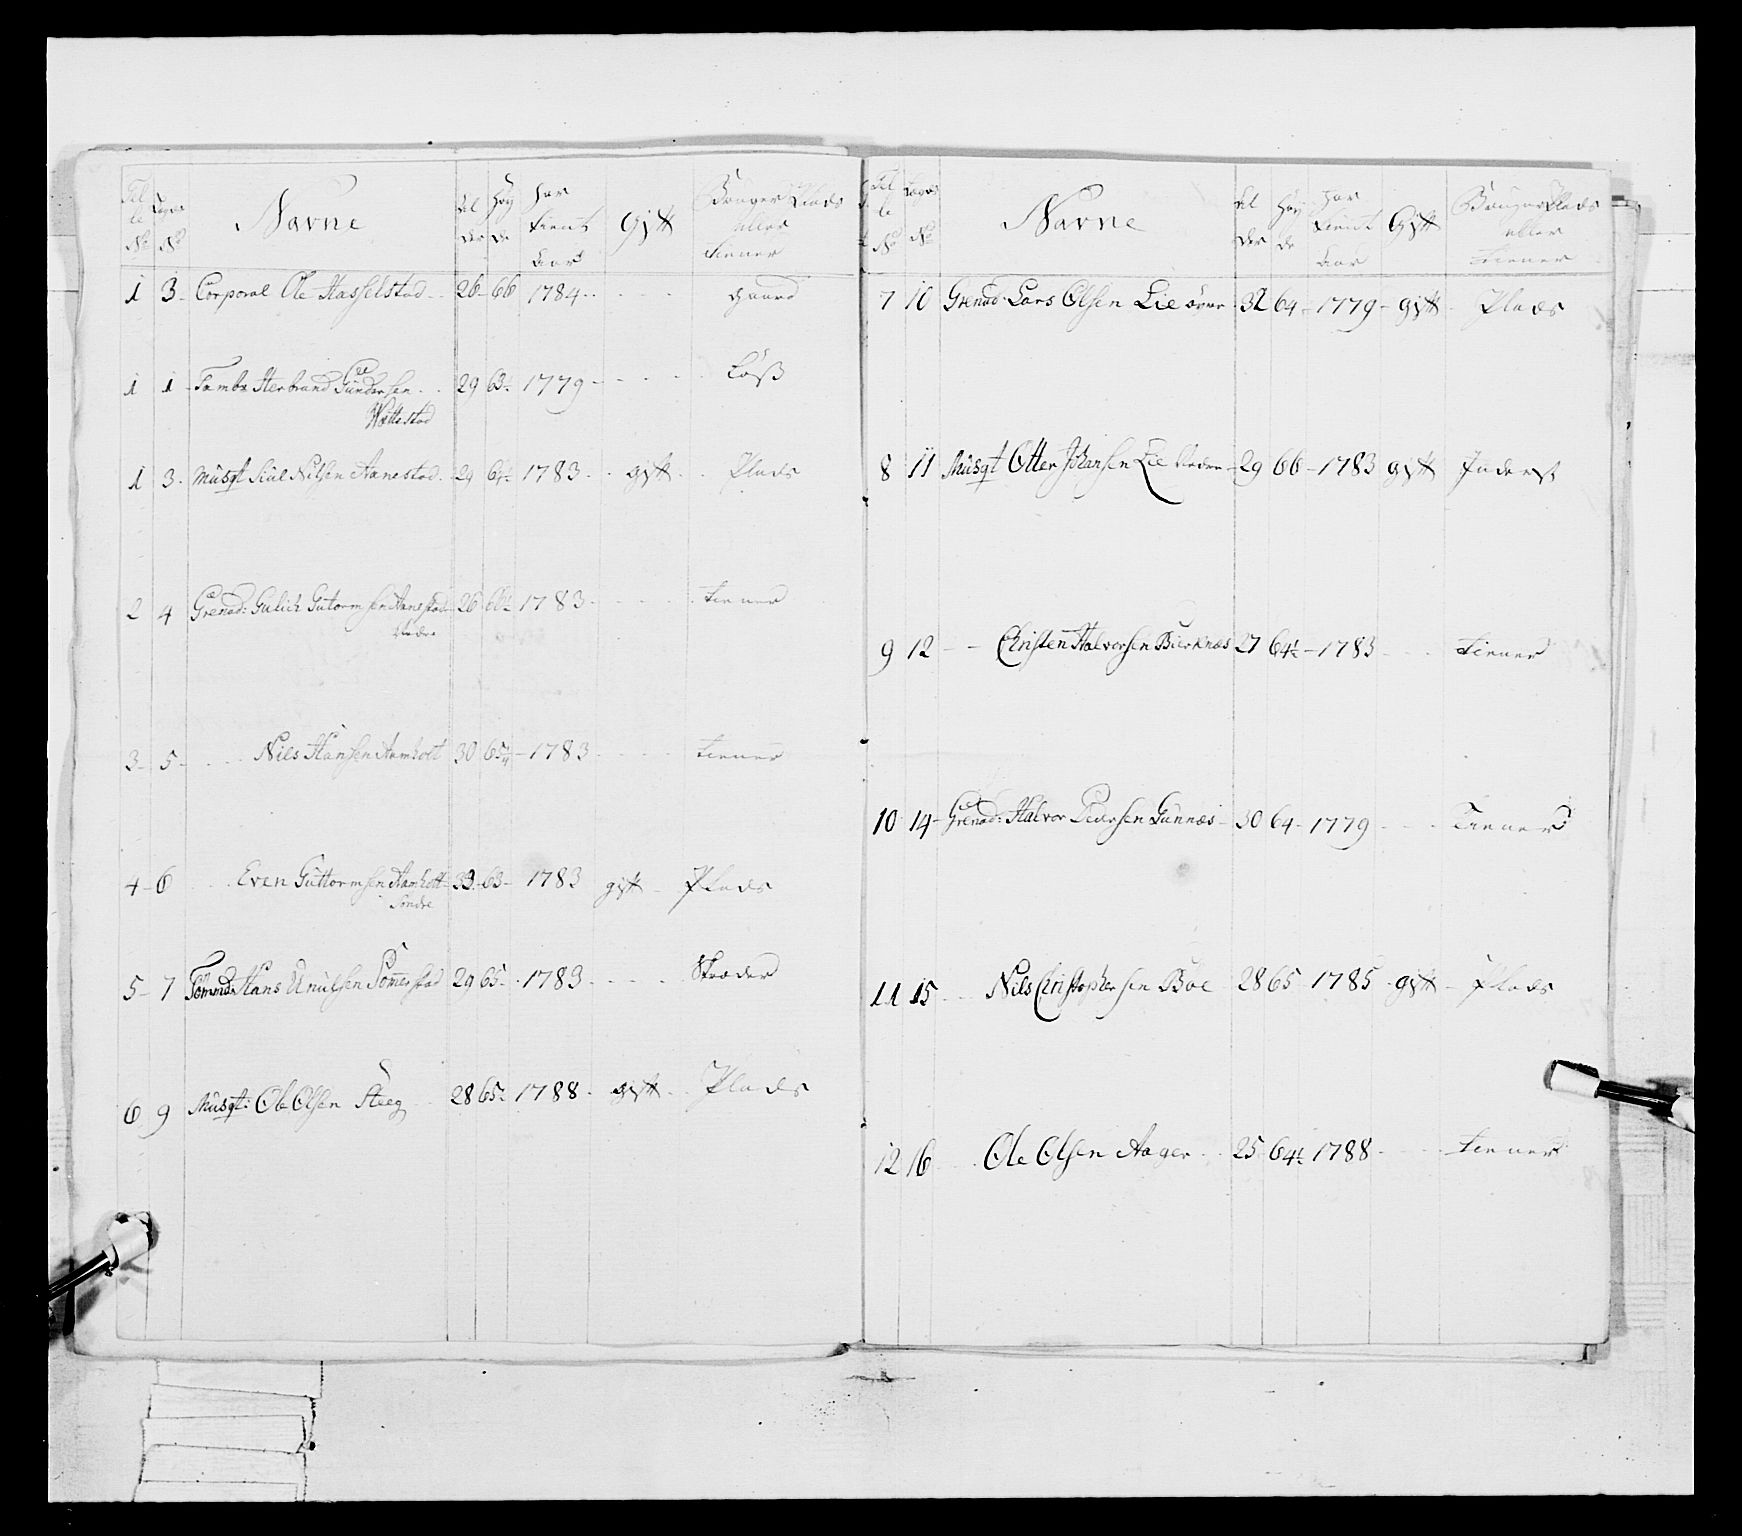 Tal le No | Lægds No | Navne | Al der | Høy de | Har tient Aar | Gift | Bruger Plads eller tiener
1 3 Corporal Ole Hasselstad 26 66 1784 gaard
1 1 Tambr Herbrand Gundersen 29 63 1779 Løß
Wættestad
1 3 Musqt Siul Nilsen Aanestad 29 64½ 1783 gift Plads
2 4 Grenad: Gulich Gutormsen Aanestad 26 66½ 1783 tiener
Nedre
3 5 Nils Hansen Aamholt 30 65¼ 1783 tiener
4 6 Even Guttormsen Aamholt 33 63 1783 gift Plads
Søndre
5 7 Tømmd: Hans Knutsen Sømerstad 29 65 1783 Skræder
6 9 Musqt: Ole Olsen Steeg 28 65½ 1788 gift Plads
Tal le No | Lægds No | Navne | Al der | Høy de | Har tient Aar | Gift | Bruger Plads eller tiener
7 10 Grenad: Lars Olsen Lie øvre 32 64 1779 gift Plads
8 11 Musqt Otter Johansen Lie Nedre 29 66 1783 gift Inderst
9 12 Christen Halvorsen Bierknæs 27 64½ 1783 tiener
10 14 Grenad: Halvor Pedersen Gunnæs 30 64 1779 Tiener
11 15 Nils Christophersen Boe 28 65 1785 gift Plads
12 16 Ole Olsen Hager 25 64½ 1788 tiener